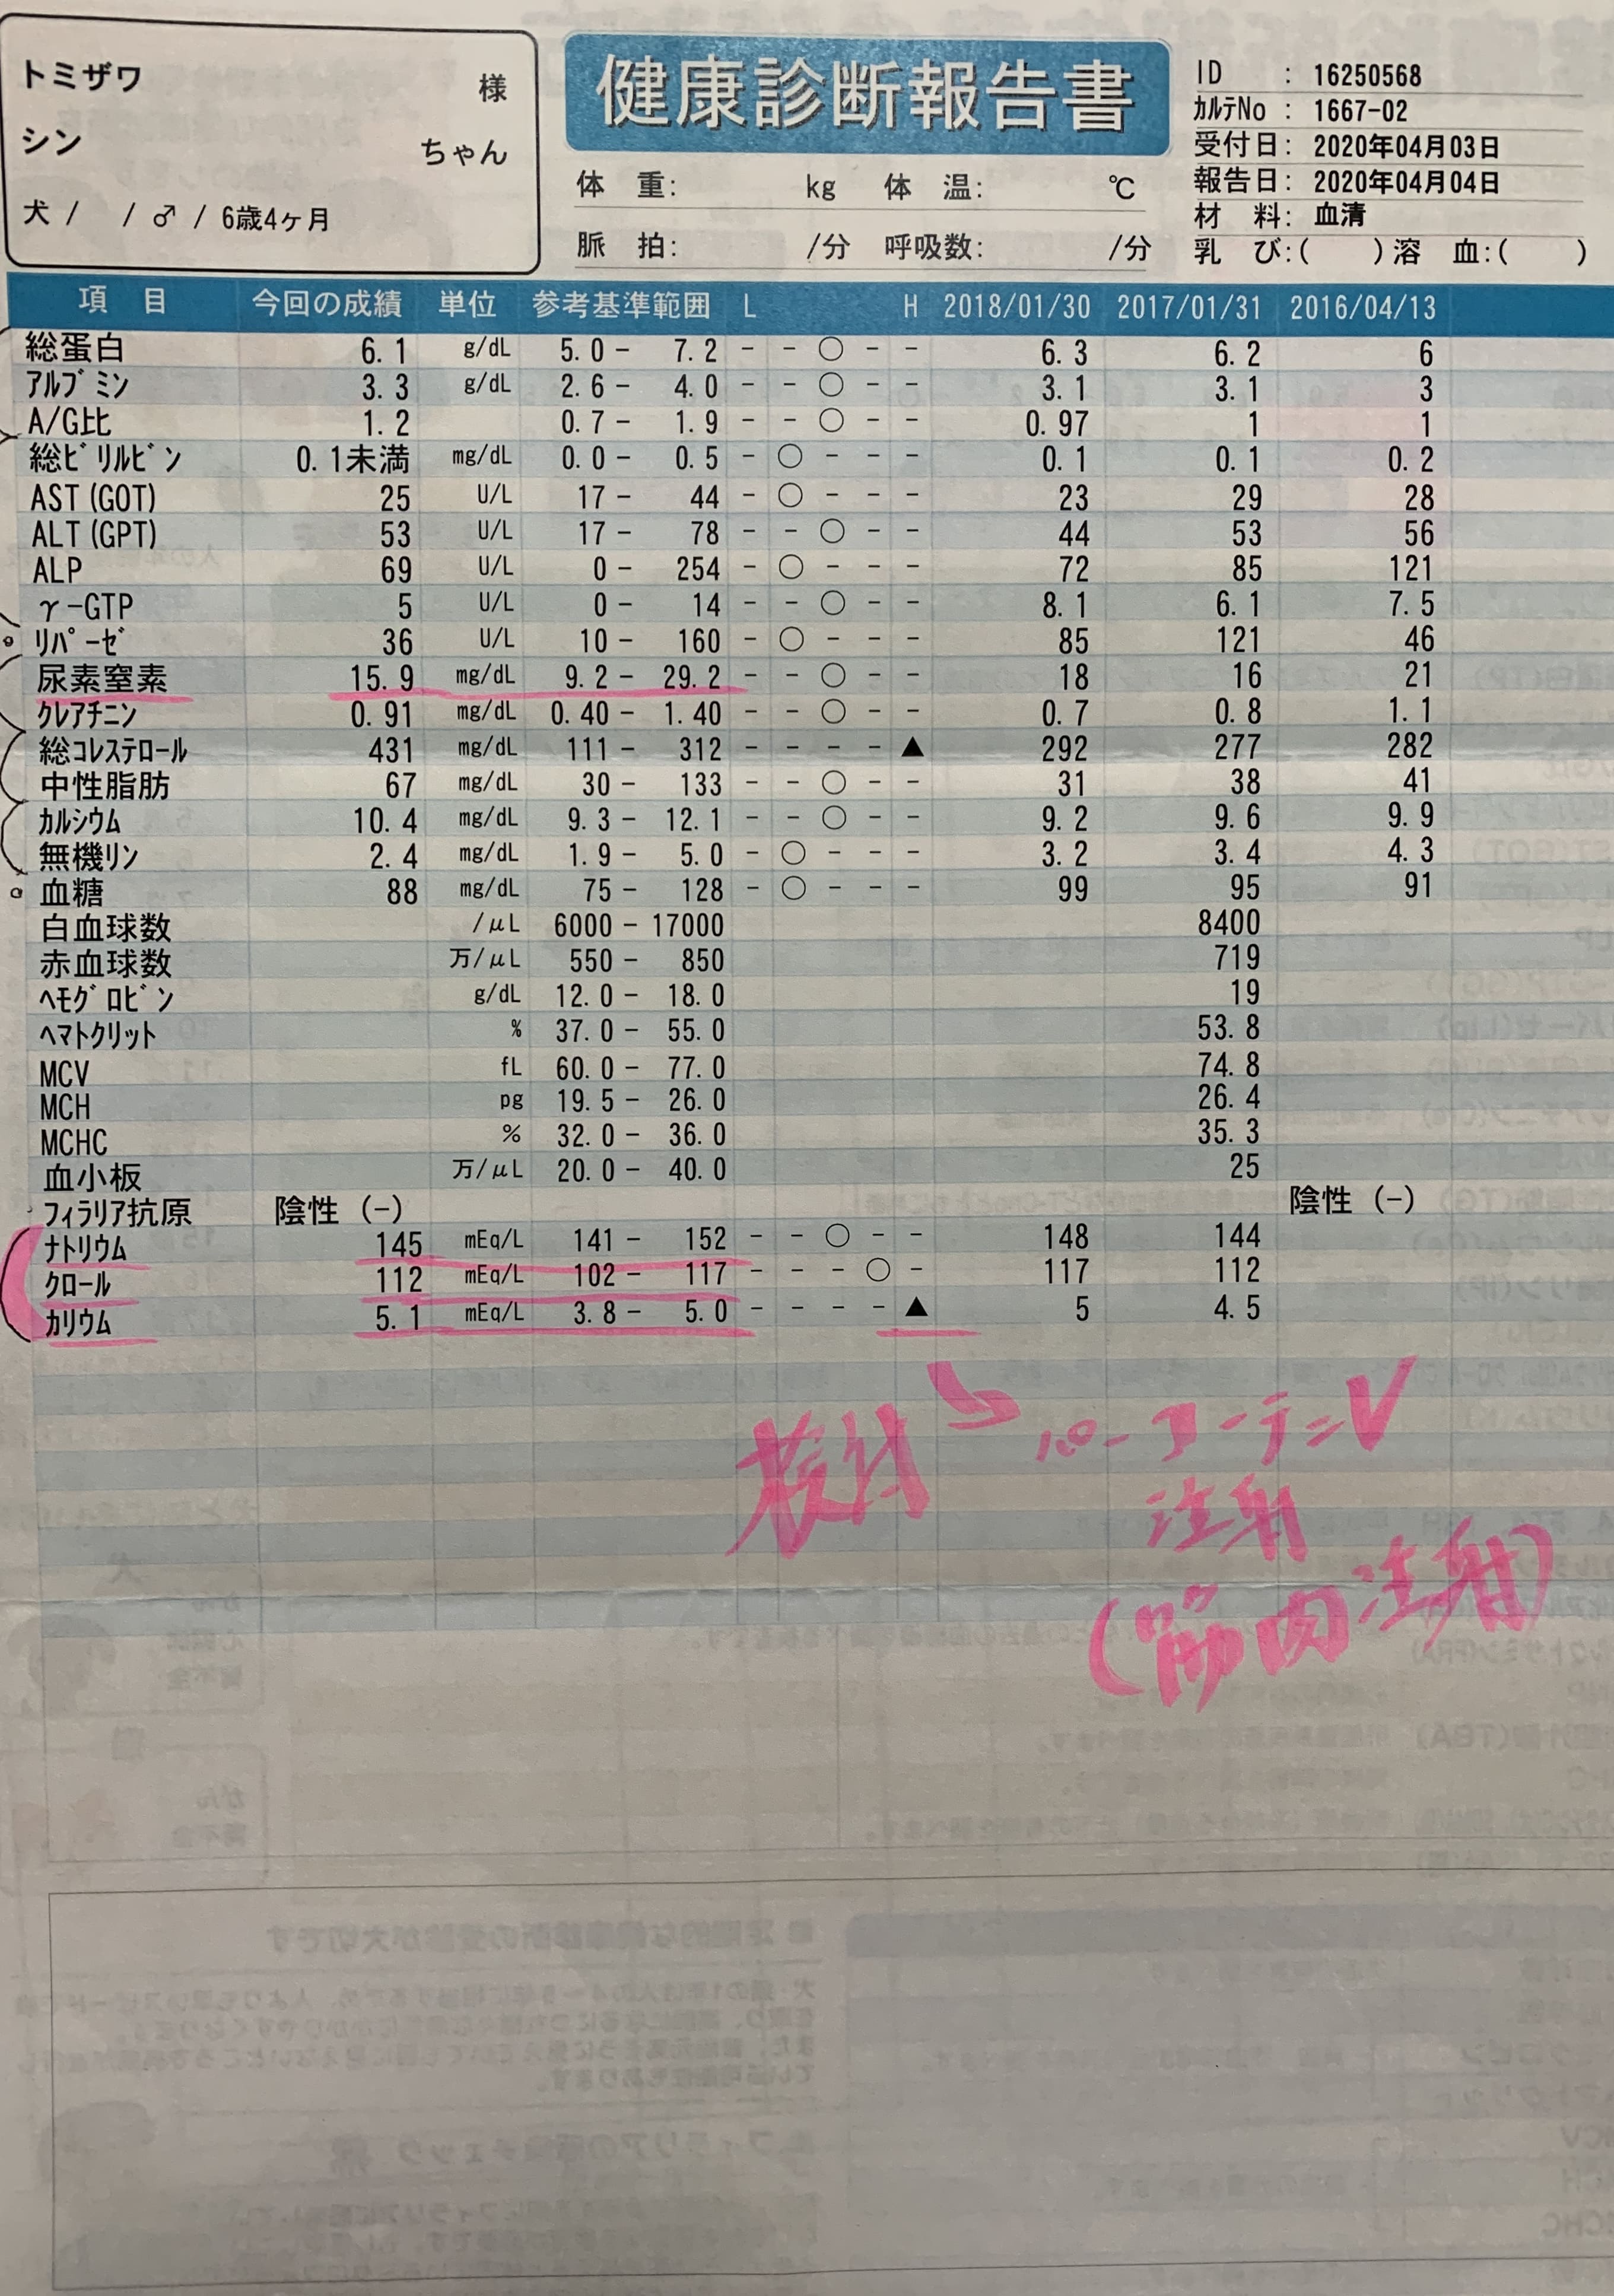 トミザワ 様
シン ちゃん
犬 / / ♂ / 6歳4ヶ月
健康診断報告書
体 重: kg 体 温: ℃
脈 拍: /分 呼吸数: /分
ID : 16250568
カルテNo : 1667-02
受付日: 2020年04月03日
報告日: 2020年04月04日
材 料: 血清
乳 び:( ) 溶 血:( )
項 目 今回の成績 単位 参考基準範囲 L H 2018/01/30 2017/01/31 2016/04/13
総蛋白 6.1 g/dL 5.0 - 7.2 - - ○ - - 6.3 6.2 6
アルブミン 3.3 g/dL 2.6 - 4.0 - - ○ - - 3.1 3.1 3
A/G比 1.2 0.7 - 1.9 - - ○ - - 0.97 1 1
総ビリルビン 0.1未満 mg/dL 0.0 - 0.5 - ○ - - - 0.1 0.1 0.2
AST(GOT) 25 U/L 17 - 44 - ○ - - - 23 29 28
ALT(GPT) 53 U/L 17 - 78 - - ○ - - 44 53 56
ALP 69 U/L 0 - 254 - ○ - - - 72 85 121
γ-GTP 5 U/L 0 - 14 - - ○ - - 8.1 6.1 7.5
リパーゼ 36 U/L 10 - 160 - ○ - - - 85 121 46
尿素窒素 15.9 mg/dL 9.2 - 29.2 - - ○ - - 18 16 21
クレアチニン 0.91 mg/dL 0.40 - 1.40 - - ○ - - 0.7 0.8 1.1
総コレステロール 431 mg/dL 111 - 312 - - - - ▲ 292 277 282
中性脂肪 67 mg/dL 30 - 133 - - ○ - - 31 38 41
カルシウム 10.4 mg/dL 9.3 - 12.1 - - ○ - - 9.2 9.6 9.9
無機リン 2.4 mg/dL 1.9 - 5.0 - ○ - - - 3.2 3.4 4.3
血糖 88 mg/dL 75 - 128 - ○ - - - 99 95 91
白血球数 /μL 6000 - 17000 8400
赤血球数 万/μL 550 - 850 719
ヘモグロビン g/dL 12.0 - 18.0 19
ヘマトクリット % 37.0 - 55.0 53.8
MCV fL 60.0 - 77.0 74.8
MCH pg 19.5 - 26.0 26.4
MCHC % 32.0 - 36.0 35.3
血小板 万/μL 20.0 - 40.0 25
フィラリア抗原 陰性 (-) 陰性 (-)
ナトリウム 145 mEq/L 141 - 152 - - ○ - - 148 144
クロール 112 mEq/L 102 - 117 - - - ○ - 117 112
カリウム 5.1 mEq/L 3.8 - 5.0 - - - - ▲ 5 4.5
パーコーテンV
注射
(筋肉注射)